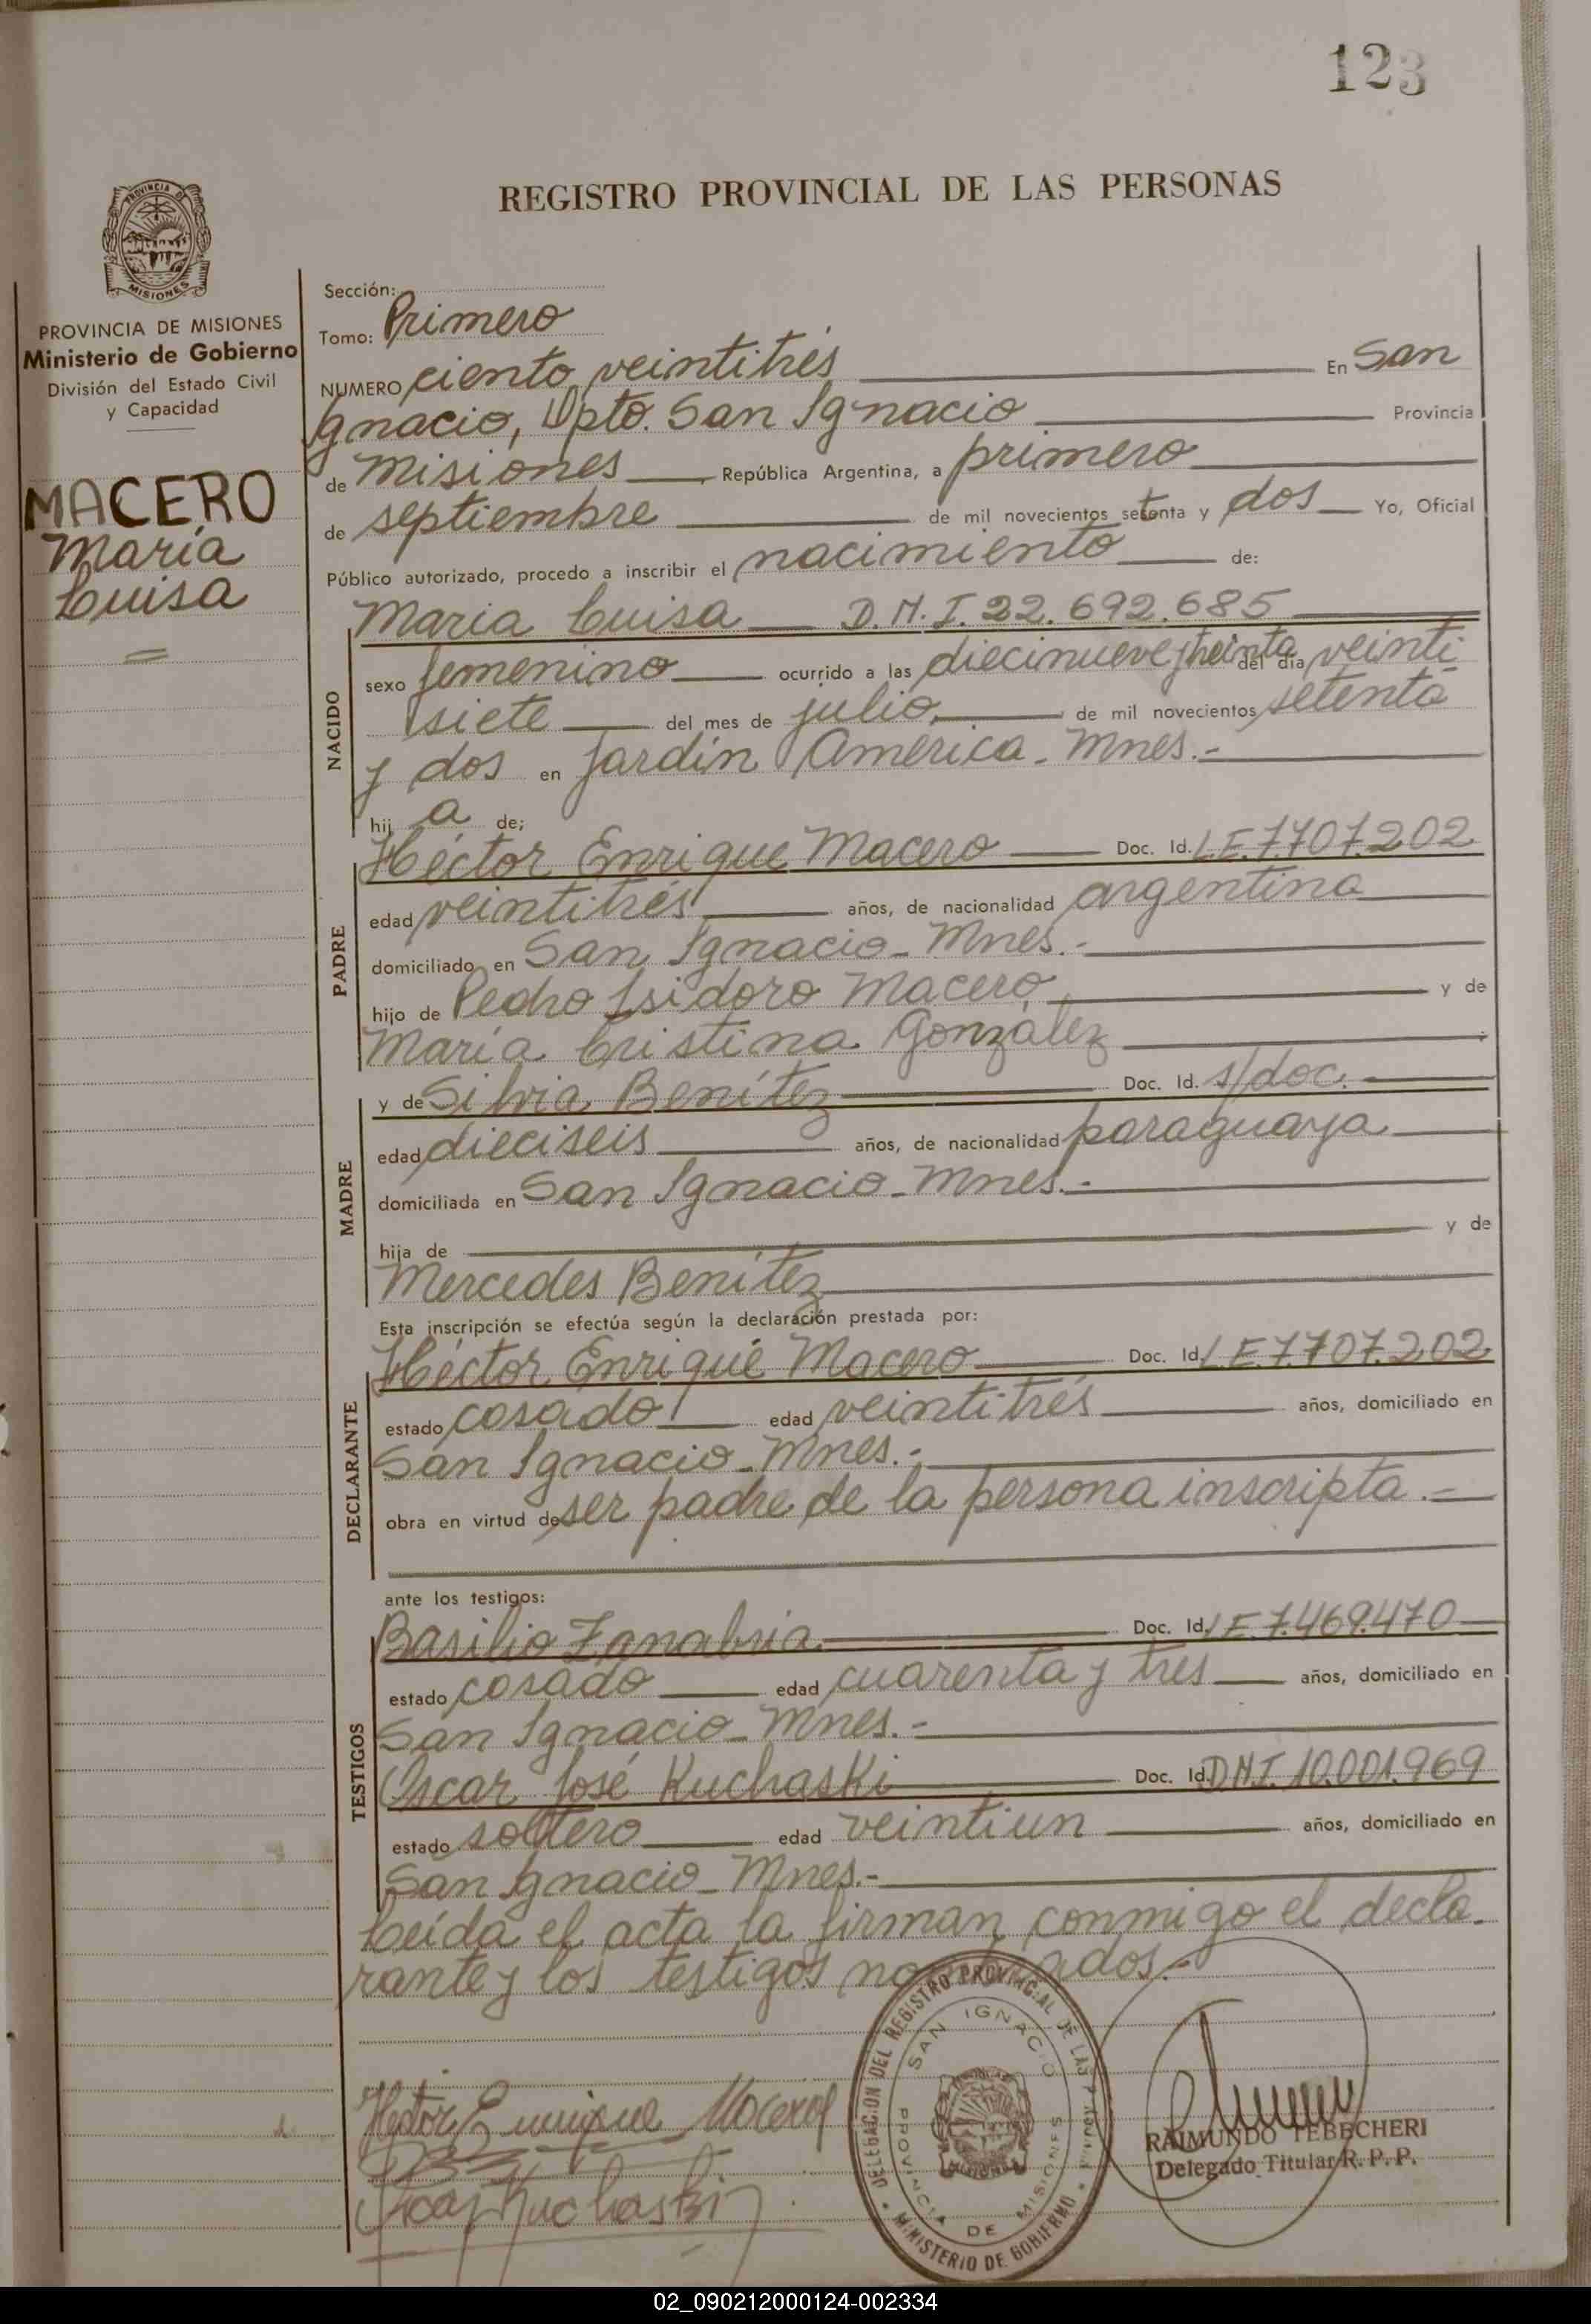 123
REGISTRO PROVINCIAL DE LAS PERSONAS
PROVINCIA DE
MISIONES
PROVINCIA DE MISIONES
Ministerio de Gobierno
División del Estado Civil
y Capacidad
MACERO
María
Luisa
Sección:
Tomo: Primero
NUMERO ciento veintitrés En San
Ignacio, Dpto. San Ignacio Provincia
de Misiones, República Argentina, a primero
de septiembre de mil novecientos setenta y dos Yo, Oficial
Público autorizado, procedo a inscribir el nacimiento de:
NACIDO
María Luisa D.N.I. 22.692.685
sexo femenino ocurrido a las diecinueve y treinta del día veinti
siete del mes de julio de mil novecientos setenta
y dos en Jardín América - Mnes.-
hij a de;
PADRE
Héctor Enrique Macero Doc. Id. L.E. 7.707.202
edad veintitrés años, de nacionalidad argentina
domiciliado en San Ignacio - Mnes.-
hijo de Pedro Isidoro Macero y de
María Cristina González
MADRE
y de Silvia Benítez Doc. Id. s/doc.
edad dieciseis años, de nacionalidad paraguaya
domiciliada en San Ignacio - Mnes.-
hija de y de
Mercedes Benítez
Esta inscripción se efectúa según la declaración prestada por:
DECLARANTE
Héctor Enrique Macero Doc. Id. L.E. 7.707.202
estado casado edad veintitrés años, domiciliado en
San Ignacio - Mnes.-
obra en virtud de ser padre de la persona inscripta.-
ante los testigos:
TESTIGOS
Basilio Zanabria Doc. Id. L.E. 7.469.470
estado casado edad cuarenta y tres años, domiciliado en
San Ignacio - Mnes.-
Oscar José Kuchaski Doc. Id. D.N.I. 10.001.969
estado soltero edad veintiun años, domiciliado en
San Ignacio - Mnes.-
Leída el acta la firman conmigo el decla-
rante y los testigos nombrados.-
DELEGACION DEL REGISTRO PROVINCIAL DE LAS PERSONAS
SAN IGNACIO
PROVINCIA DE MISIONES
MINISTERIO DE GOBIERNO
Hector Enrique Macero
Oscar Kuchaski
RAIMUNDO TEBECHERI
Delegado Titular R. P. P.
02_090212000124-002334